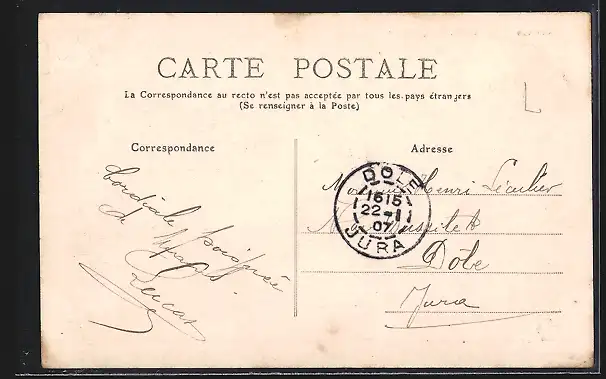 CARTE POSTALE
La Correspondance au recto n'est pas acceptée par tous les pays étrangers
(Se renseigner à la Poste)
Correspondance
Adresse
Cordiale poignée
de
Lucas
DOLE
1615
22-1
07
JURA
Monsieur Henri Léculier
Dôle
Jura
L